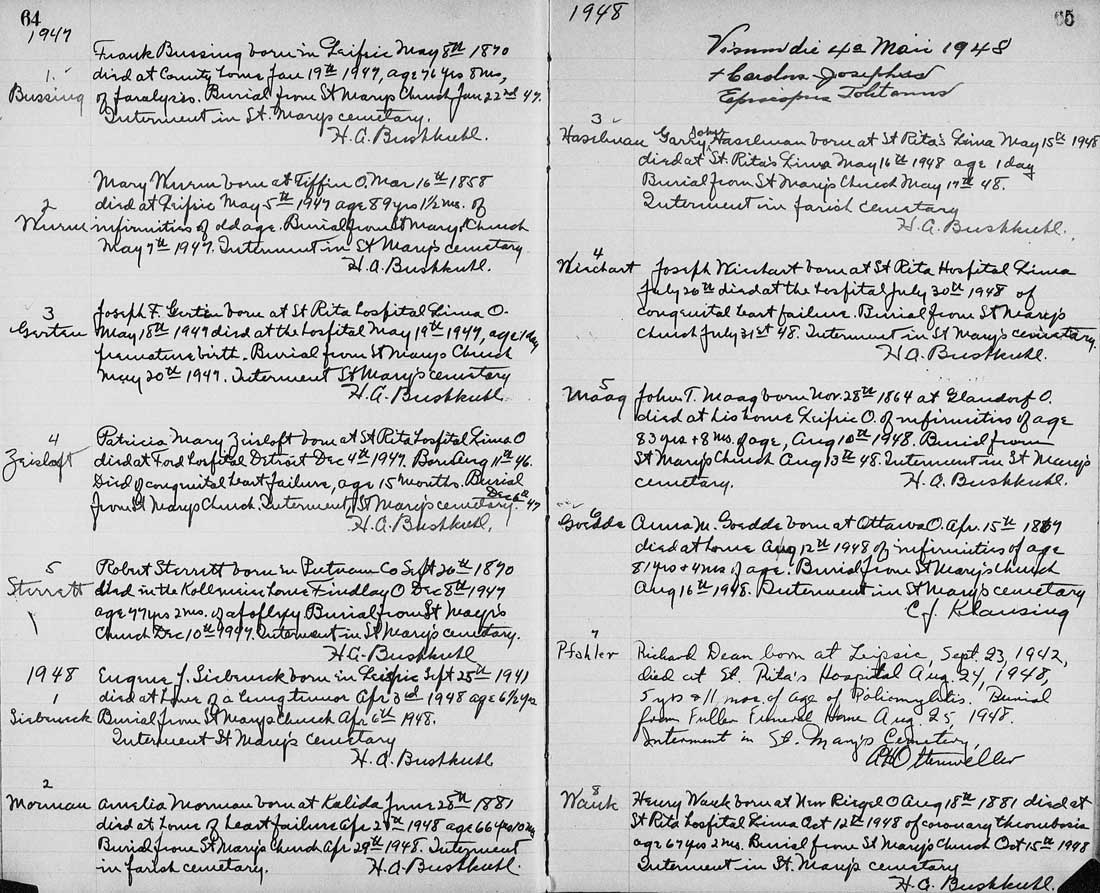 64
1947
Frank Bussing born in Leipsic May 8th 1870
1.
died at County home Jan 19th 1947, age 76 yrs 8ms,
Bussing
of paralysis. Burial from St Mary's Church Jan 22nd 47.
Interment in St. Mary's cemetery.
H. A. Bushkuhl.
Mary Wurm born at Tiffin O. Mar 16th 1858
2
died at Leipsic May 5th 1947 age 89 yrs 1 1/2 ms. of
Wurm
infirmities of old age. Burial from St Marys Church
May 7th 1947. Interment in St Mary's cemetary
H. A. Bushkuhl.
3
Joseph F. Gerten born at St Rita hospital Lima O.
Gerten
May 18th 1947 died at the hospital May 19th 1947, age 1 day
premature birth. Burial from St Mary's Church
May 20th 1947. Interment St Mary's cemetary
H. A. Bushkuhl
4
Patricia Mary Zeisloft born at St Rita hospital Lima O
Zeisloft
died at Ford hospital Detroit Dec 4th 1947. Born Aug 11th 46.
Died of congenital heart failure, age 15 months. Burial
from St Mary's Church. Interment St Mary's cemetary. Dec 6th 47
H. A. Bushkuhl.
5
Robert Sterrett born in Putnam Co Sept 26th 1870
Sterrett
died in the home Findlay O Dec 8th 1947
age 77 yrs 2 mos. of apoplexy Burial from St Mary's
Church Dec 10th 1947. Interment in St Mary's cemetary.
H. A. Bushkuhl
1948
Eugene J. born in Leipsic Sept 25th 1941
1
died at home of a lung tumor Apr 3rd 1948 age 6 1/2 yrs
Burial from St Marys Church Apr 6th 1948.
Interment St Mary's cemetary
H. A. Bushkuhl
2
Morman
Amelia Morman born at Kalida June 28th 1881
died at home of heart failure Apr 1948 age 66 yrs 10 ms
Burial from St Mary's Church Apr 29th 1948. Interment
in parish cemetary.
H. A. Bushkuhl.
1948
65
Visum die 4a Maii 1948
+ Carolus Josephus
Episcopus Toletanus
3
Haselman
Gary John Haselman born at St Rita's Lima May 15th 1948
died at St. Rita's Lima May 16th 1948 age 1 day
Burial from St Mary's Church May 17th 48.
Interment in parish cemetary
H. A. Bushkuhl.
4
Wiechart
Joseph Wiechart born at St Rita Hospital Lima
July 20th died at the hospital July 30th 1948 of
congenital heart failure. Burial from St Mary's
church July 31st 48. Interment in St Mary's cemetary.
H A. Bushkuhl.
5
Maag
John T. Maag born Nov. 28th 1864 at Glandorf O.
died at his home Leipsic O. of infirmities of age
83 yrs + 8 ms. of age, Aug 10th 1948. Burial from
St Mary's Church Aug 13th 48. Interment in St Mary's
cemetary.
H. A. Bushkuhl.
6
Goedde
Anna M. Goedde born at Ottawa O. Apr. 15th 1867
died at home Aug 12th 1948 of infirmities of age
81 yrs + 4 mos of age. Burial from St Mary's church
Aug 16th 1948. Interment in St Mary's cemetary
C. J. Klausing
7
Pfahler
Richard Dean born at Leipsic, Sept. 23, 1942,
died at St. Rita's Hospital Aug. 24, 1948,
5 yrs & 11 mos. of age of Poliomylitis. Burial
from Fuller Funeral Home Aug. 25, 1948.
Interment in St. Mary's Cemetery.
8
Wauk
Henry Wauk born at New Riegel O Aug 18th 1881 died at
St Rita hospital Lima Oct 12th 1948 of coronary thrombosis
age 67 yrs 2 ms. Burial from St Mary's Church Oct 15th 1948
Interment in St. Mary's cemetary
H. A. Bushkuhl.